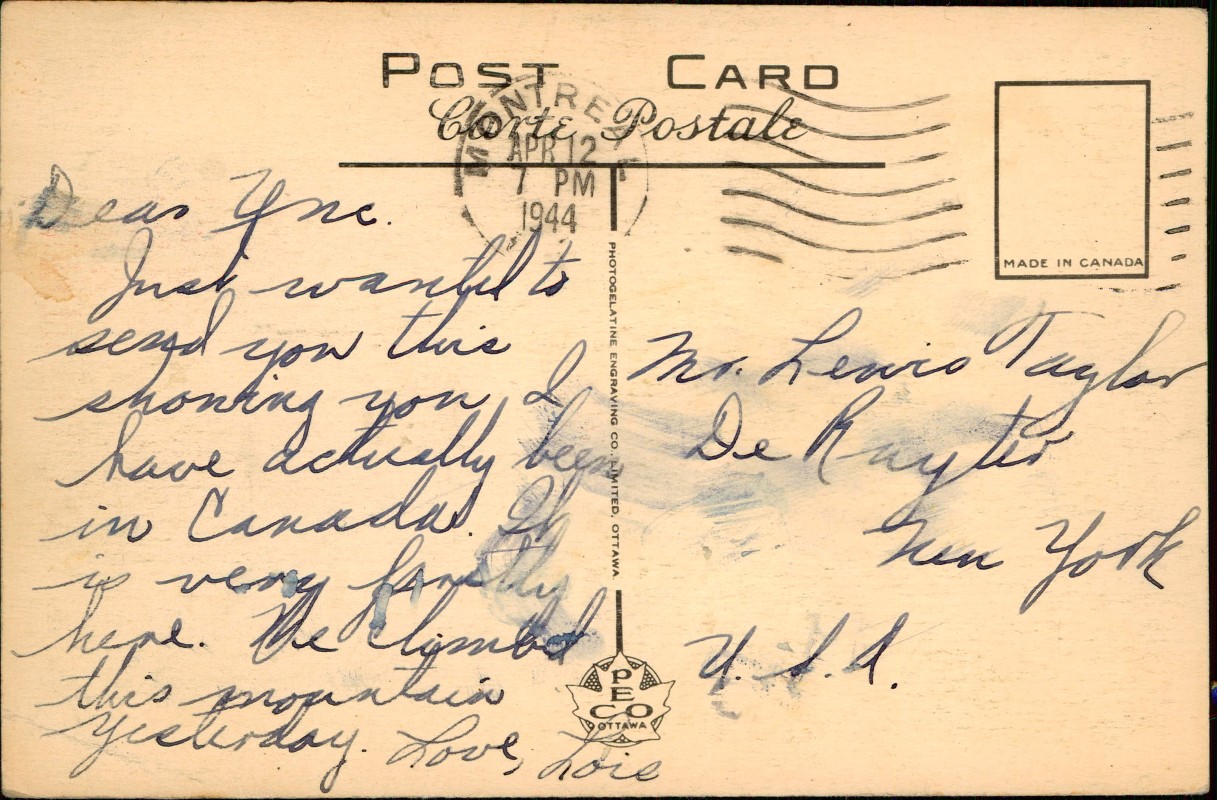 POST CARD
Carte Postale
MONTREAL
APR 12
7 PM
1944
MADE IN CANADA
Dear Unc.
Just wanted to
send you this
showing you I
have actually been
in Canada. It
is very
here. We climbed
this mountain
yesterday. Love, Lois
PHOTOGELATINE ENGRAVING CO. LIMITED, OTTAWA
Mr. Lewis Taylor
De Ruyter
New York
U.S.A.
PECO
OTTAWA